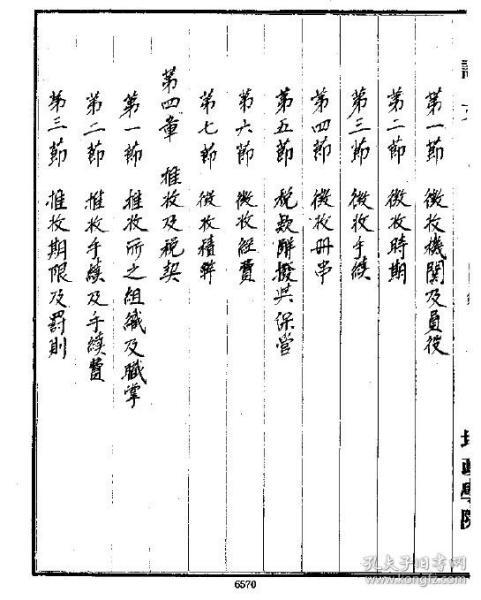 第一節 徵收機關及員役
第二節 徵收時期
第三節 徵收手續
第四節 徵收冊串
第五節 稅款解撥與保管
第六節 徵收經費
第七節 徵收積弊
第四章 推收及稅契
第一節 推收所之組織及職掌
第二節 推收手續及手續費
第三節 推收期限及罰則
6570
孔夫子旧书网
www.kongfz.com